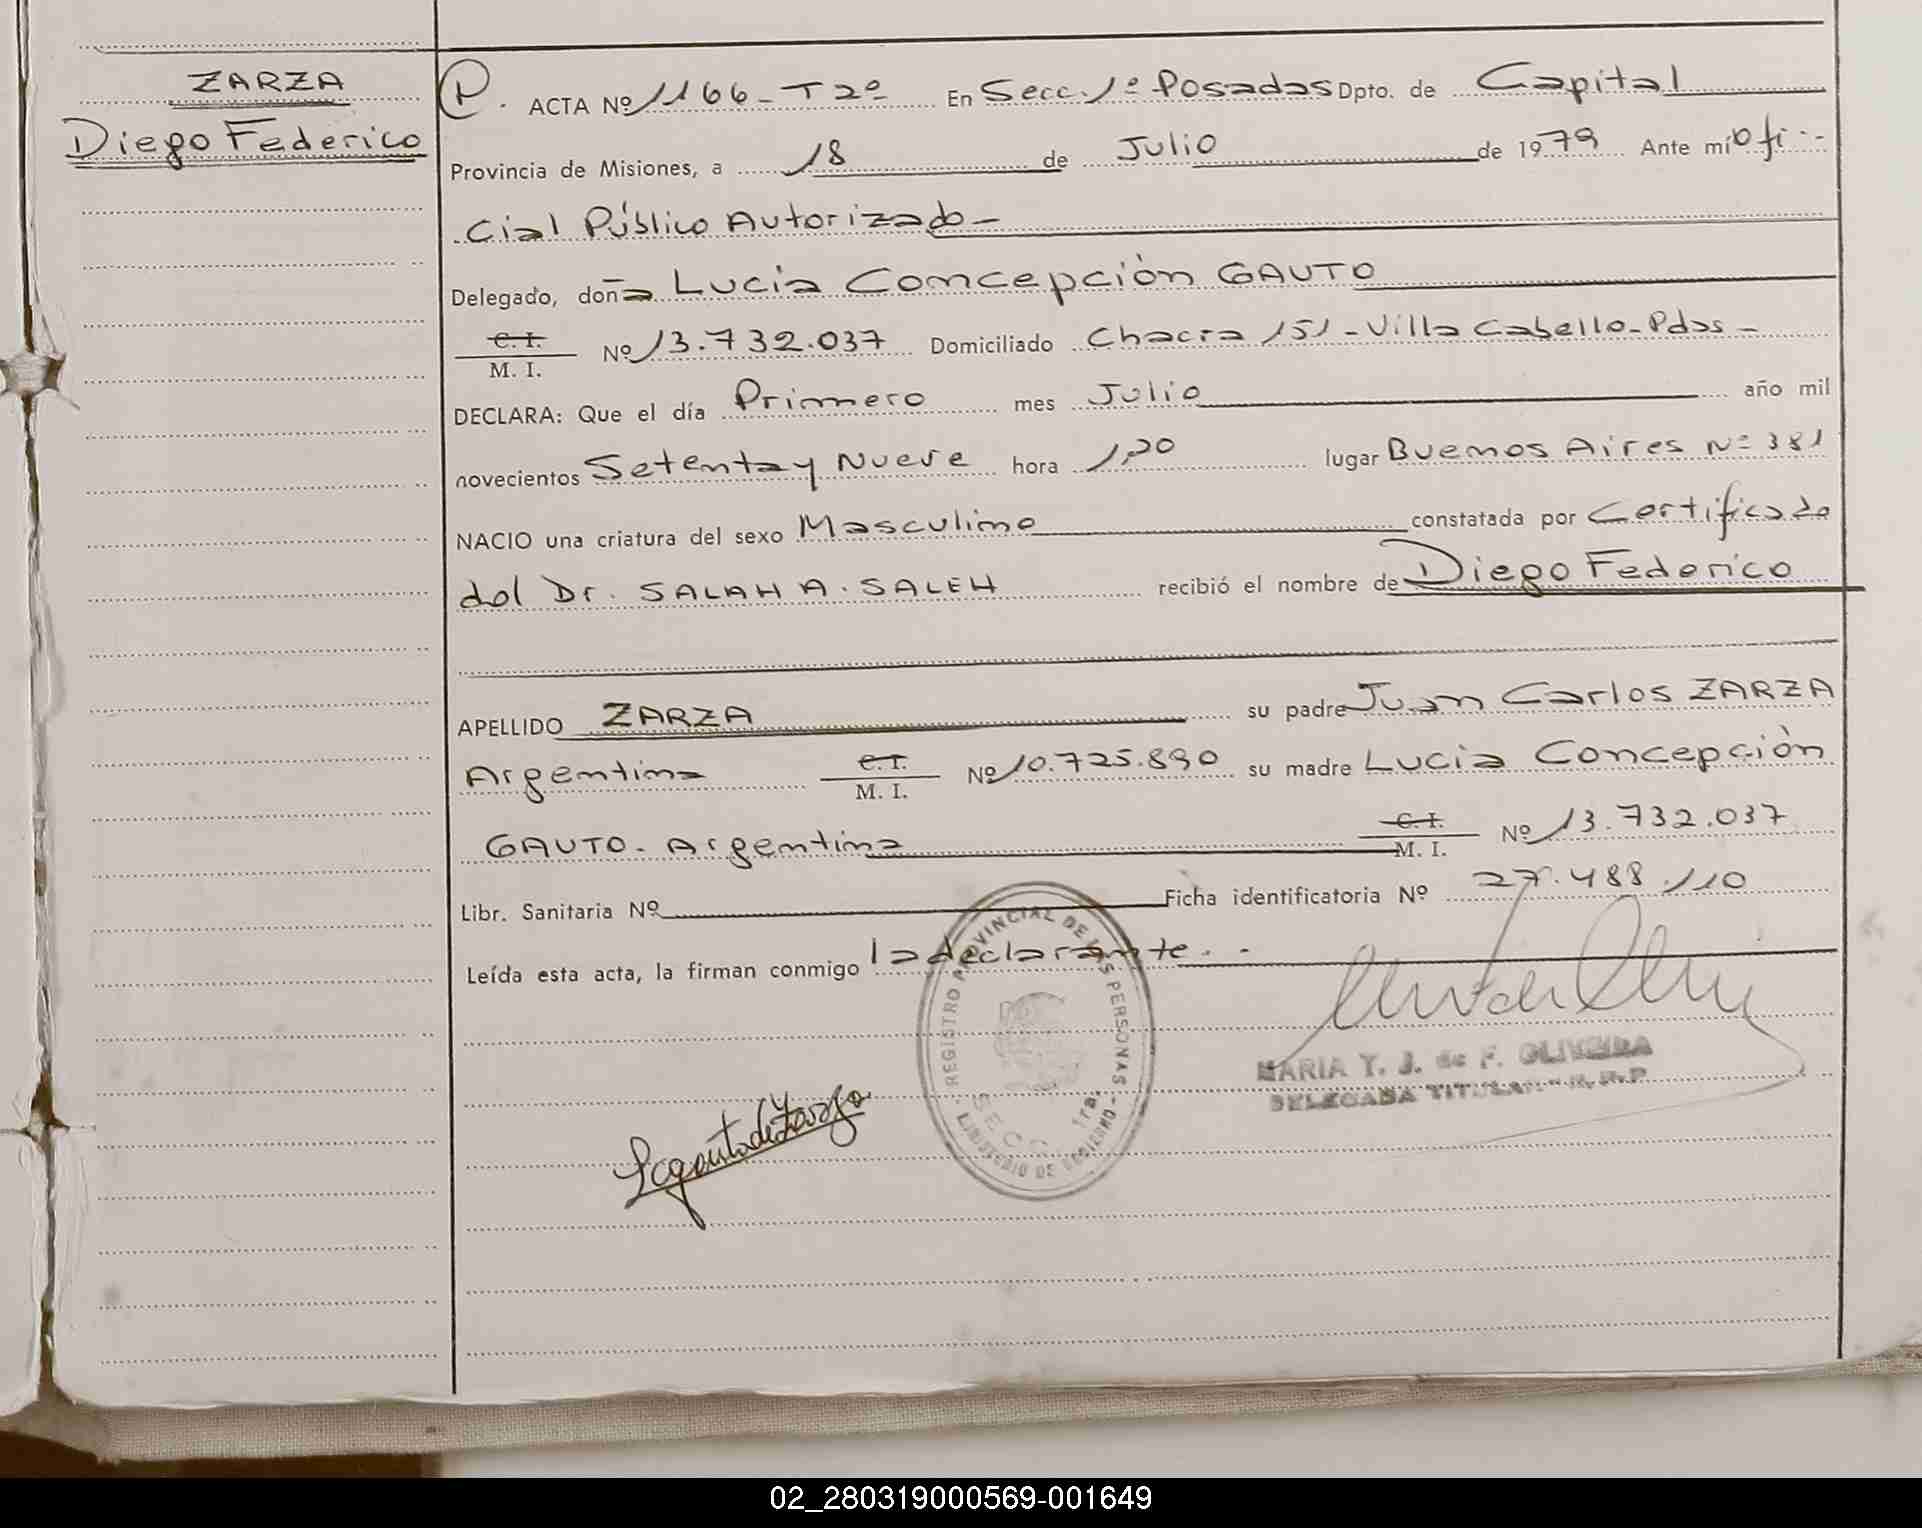 ZARZA
Diego Federico
P. ACTA Nº 1166 - T 2º En Secc. 1º Posadas Dpto. de Capital
Provincia de Misiones, a 18 de Julio de 1979 Ante mí Ofi-
cial Público Autorizado -
Delegado, doña Lucia Concepción GAUTO
C. I.
M. I. Nº 13.732.037 Domiciliado Chacra 151 - Villa Cabello - Pdas -
DECLARA: Que el día Primero mes Julio año mil
novecientos Setenta y Nueve hora 1,20 lugar Buenos Aires Nº 381
NACIO una criatura del sexo Masculino constatada por Certificado
del Dr. SALAH A. SALEH recibió el nombre de Diego Federico
APELLIDO ZARZA su padre Juan Carlos ZARZA
Argentina C. I. M. I. Nº 10.725.890 su madre Lucia Concepción
GAUTO - Argentina C. I. M. I. Nº 13.732.037
Libr. Sanitaria Nº Ficha identificatoria Nº 27.488.110
Leída esta acta, la firman conmigo la declarante. -
REGISTRO PROVINCIAL DE LAS PERSONAS
SECC. 1ra.
MINISTERIO DE GOBIERNO
MARIA Y. J. de F. OLIVEIRA
DELEGADA TITULAR - R. P. P.
LCGauto de Zarza
02_280319000569-001649